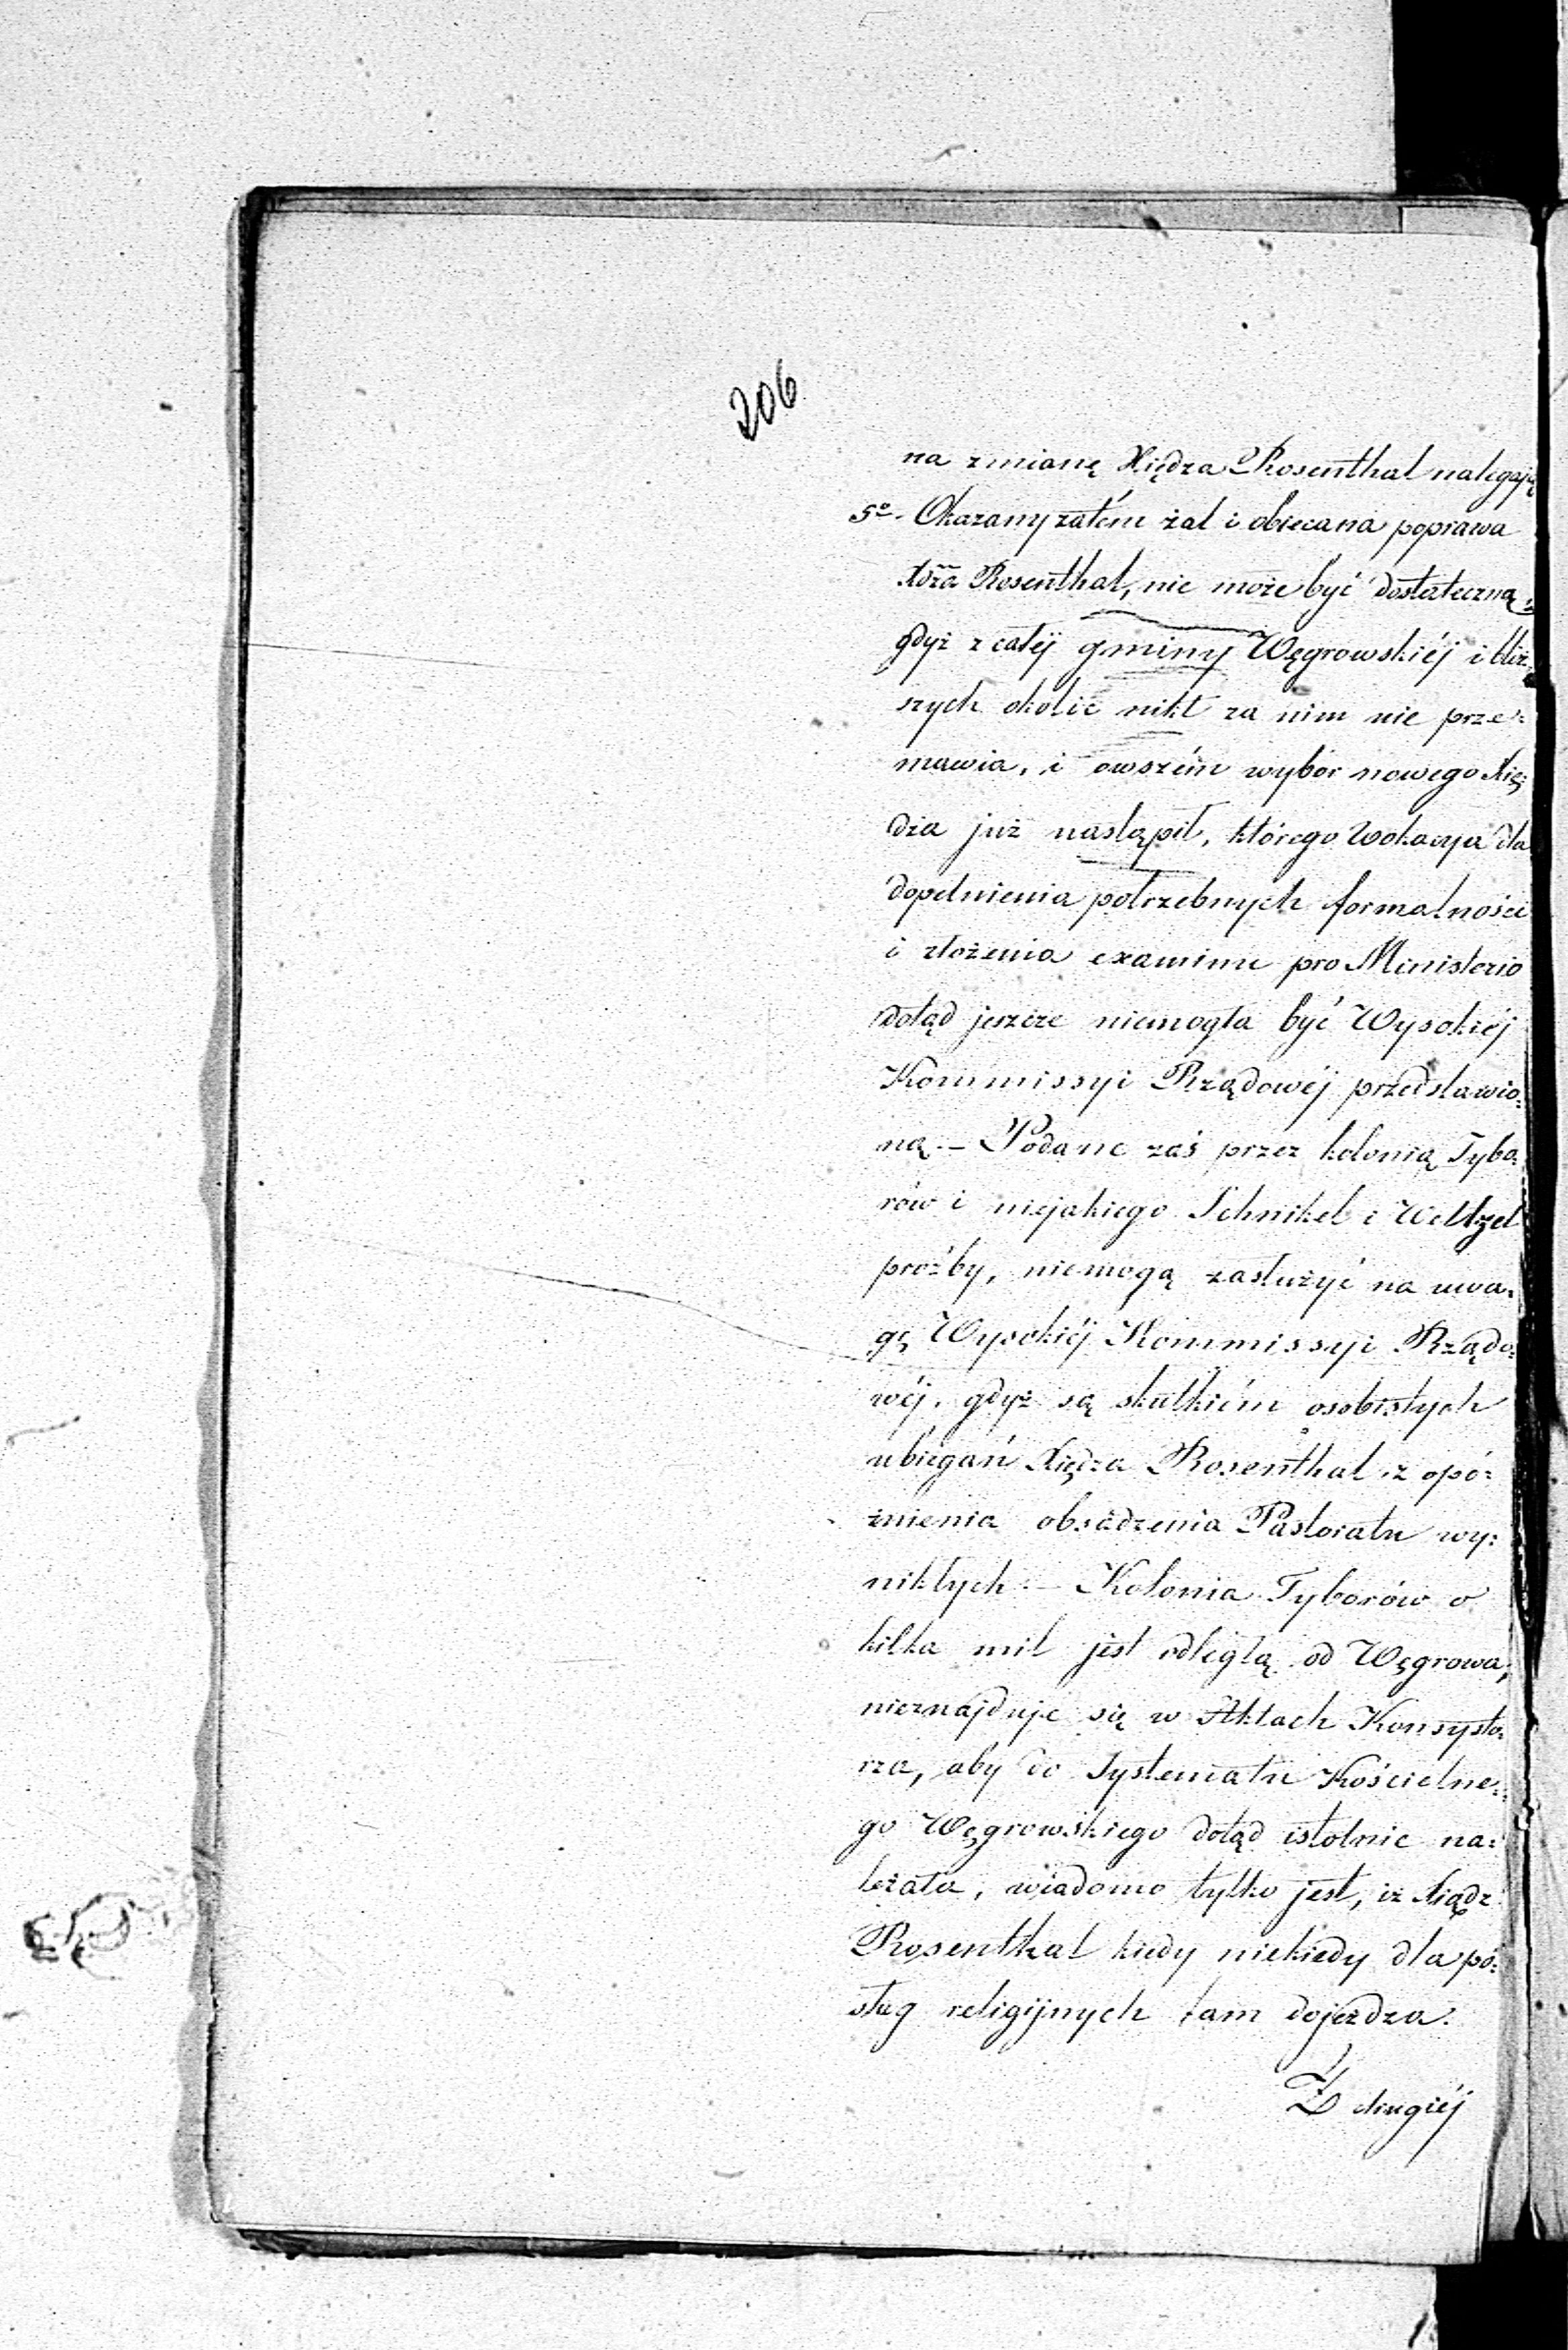 206
na zmianę Xiędza Rosenthal nalegają
5o- Okazany zatém żal i obiecana poprawa
Xdza Rosenthal, nie może być dostateczną,
gdyż z całéj gminy Węgrowskiéj i bliż:
szych okolic nikt za nim nie prze:
mawia, i owszém wybór nowego Xię:
dza już nastąpił, którego Wokacya dla
dopełnienia potrzebnych formalności
i złożenia examinu pro Ministerio
dotąd jeszcze niemogła być Wysokiéj
Kommissyi Rządowéj przedstawio:
ną. - Podane zaś przez kolonią Tybo:
rów i niejakiego Schnikel i Weltzel
prożby, niemogą zasłużyć na uwa:
gę Wysokiéj Kommissyi Rządo:
wéj, gdyż są skutkiém osobistych
ubiegań Xiędza Rosenthal z opó:
źnienia obsadzenia Pastoratu wy:
nikłych. - Kolonia Tyborów o
kilka mil jest odległą od Węgrowa,
nieznajduje się w Aktach Konsysto:
rza, aby do Systematu Kościelne:
go Węgrowskiego dotąd istotnie na:
leżała, wiadomo tylko jest, iż Xiądz
Rosenthal kiedy niekiedy dla po:
sług religijnych tam dojeżdza.
Z drugiéj